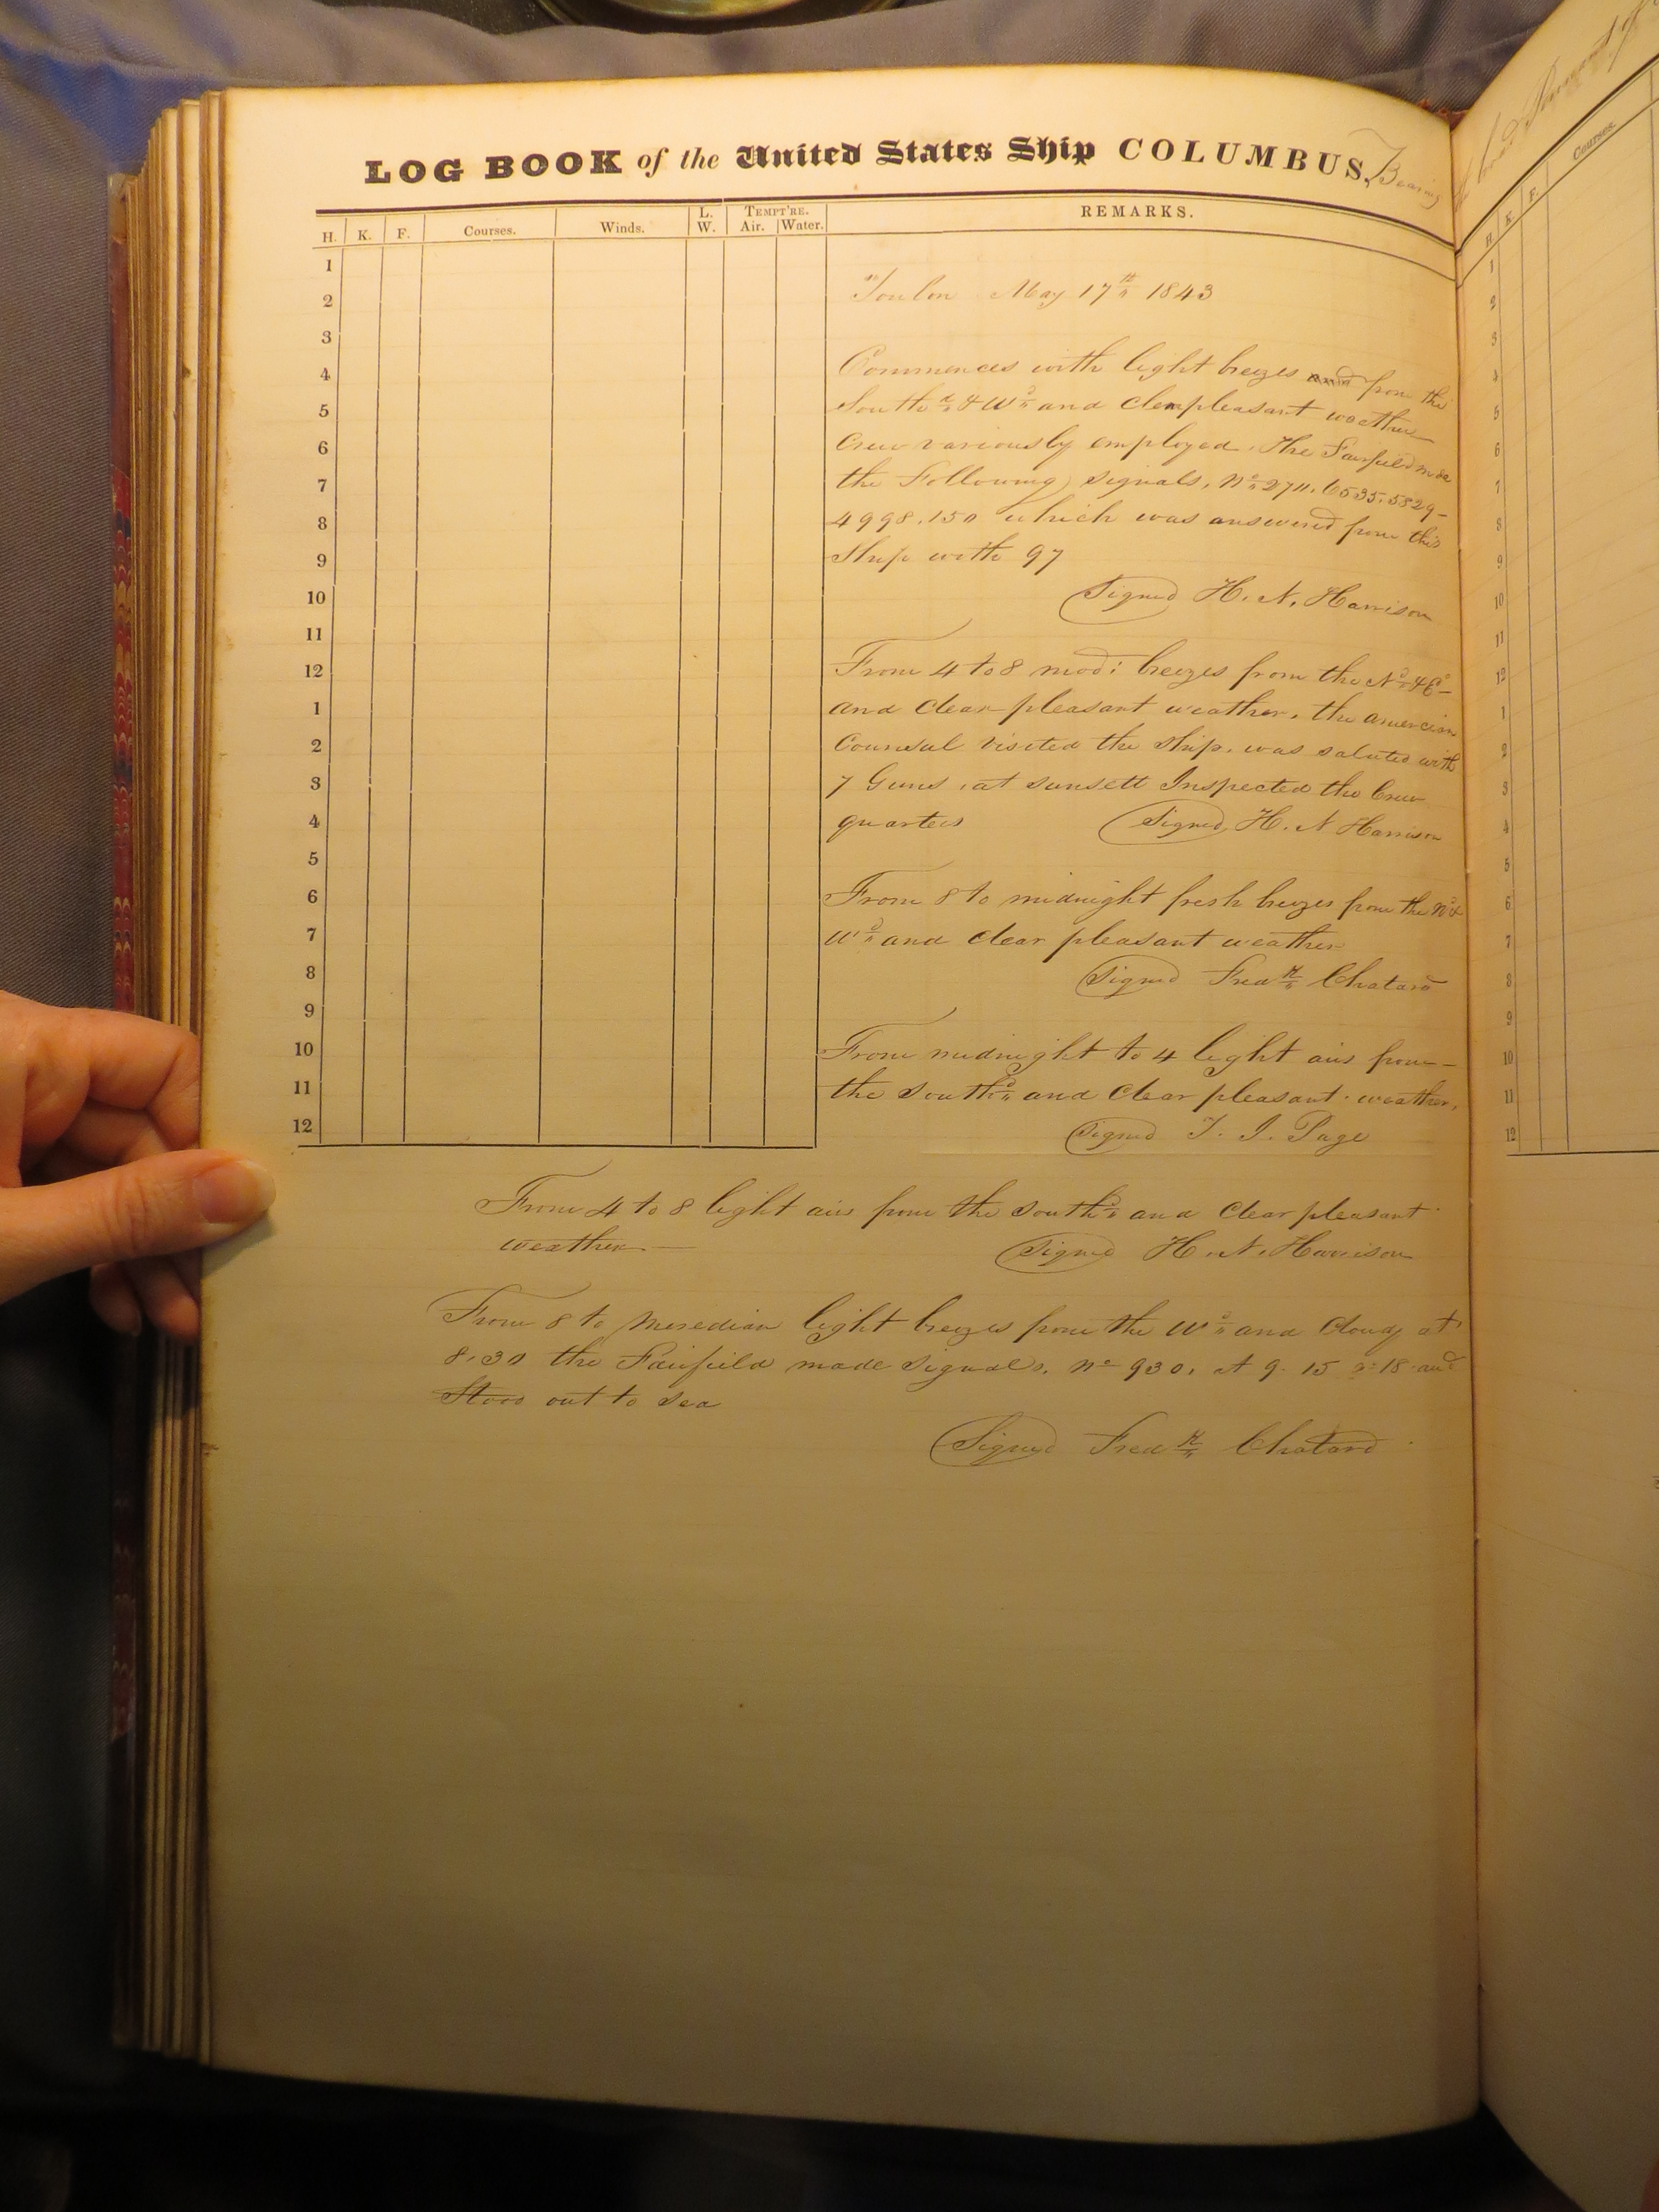 LOG BOOK of the United States Ship COLUMBUS, Bearing
H. K. F. Courses. Winds. L. W. TEMPT'RE. Air. Water. REMARKS.
1
2
3
4
5
6
7
8
9
10
11
12
1
2
3
4
5
6
7
8
9
10
11
12
Toulon May 17th 1843
Commences with light breezes and from the
South'd & W'd and clear pleasant weather
Crew variously employed. The Fairfield made
the Following signals, No 2711. 6535. 5829-
4998. 150 which was answered from this
Ship with 97
Signed H. N. Harrison
From 4 to 8 mod: breezes from the N'd & E'd
and Clear pleasant weather. the amercian
Counsul visited the ship. was saluted with
7 Guns. at sunsett Inspected the Crew
quarters Signed H. N Harrison
From 8 to midnight fresh breezes from the N'd &
W'd and clear pleasant weather
Signed Fredk Chatard
From midnight to 4 light airs from
the South'd and Clear pleasant weather,
Signed T. J. Page
From 4 to 8 light airs from the South'd and Clear pleasant
weather Signed H. N. Harrison
From 8 to Meredian light breezes from the W'd and Cloudy at
8.30 the Fairfield made Signals. No 930. At 9. 15 18 and
Stood out to Sea
Signed Fredk Chatard
Courses.
H. K. F.
1
2
3
4
5
6
7
8
9
10
11
12
1
2
3
4
5
6
7
8
9
10
11
12